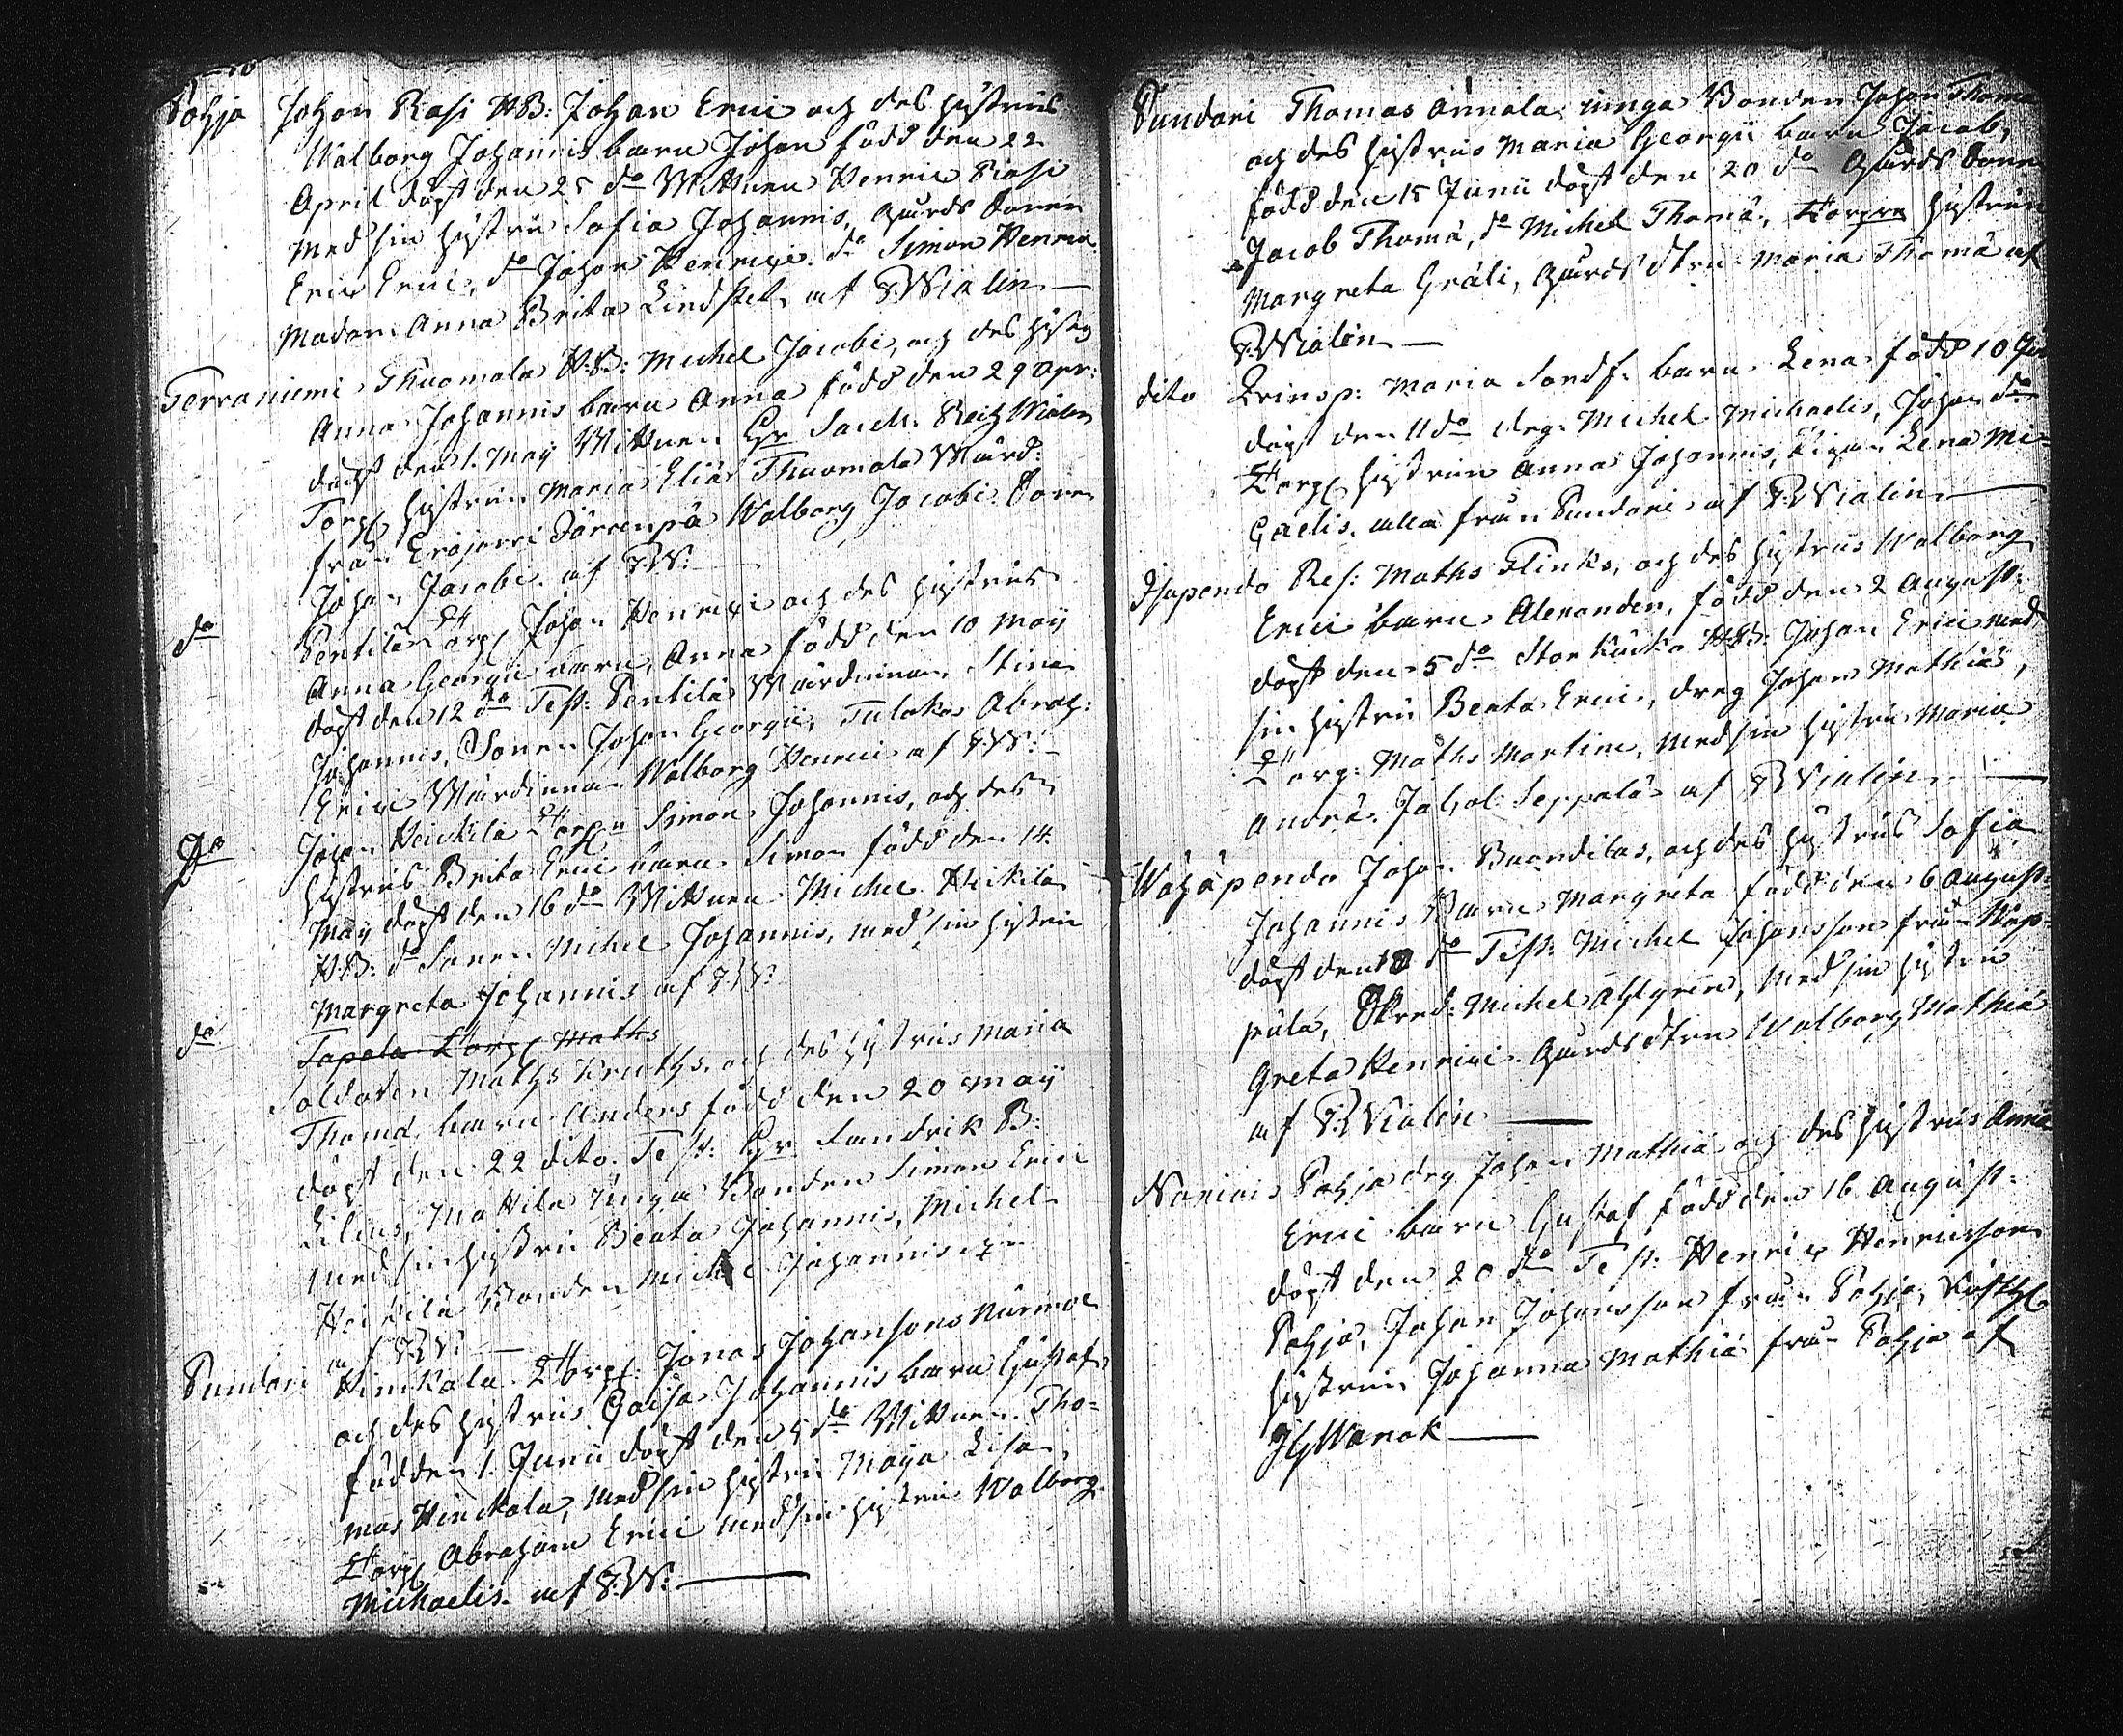 Pohja Johan Rasi HB: Johan Erici och des hustrus
Walborg Johannis barn Johan född den 22
April döpt den 25 do Wittnen Henric Rasi
med sin hustru Sofia Johannis, Gårds Sonen
Eric Erici, do Johan Henrici do Simon Henrici
Madam Anna Brita Lindstet af P:Wialin
Terraniemi Thuomola H:B: Michel Jacobi, och des hustrus
Anna Johannis barn Anna född den 29 Apr:
döpt den 1. Maij Wittnen Hr Wialen
Torp hustrun Maria Eliä Thuomola Wärd:
från Eräjervi Walborg Jacobi Sonen
Johan Jacobi af P:W:
do Pentilä Torp Johan Henrici och des hustrus
Anna Georgii barn Anna född den 10 Maij
döpt den 12 do Test: Pentilä Wärdinnan Stina
Johannis, Sonen Johan Georgii, Tulokas Abrah:
Erici Wärdinnan Walborg Henrici af P:W:
Do Johan Heickilä Torp Simon Johannis, och des
hustrus Brita Erici barn Simon född den 14.
Maij döpt den 16 do Wittnen Michel Heikilä
H:B: do Sonen Michel Johannis, med sin hustru
Margreta Johannis af P:W:
do Tapola Torp Maths
Soldaten Maths Kruths. och des hustrus Maria
Thomä, barn Anders född den 20 Maij
döpt den 22 dito. Test: Hr Landtrik B:
Lilius, Mattila unga Bonden Simon Erici
med sin hustru Beata Johannis, Michel
Heikilä Bonden Michel Johannis
af P:W:
Pundari Hinckala Torp: Jonas Johansons Nurmoe
och des hustrus Caisa Johannis barn Gustaf,
född den 1. Junii döpt den 5 do Wittnen Tho=
mas Hinckala, med sin hustru Maija Lisa
Torp Abraham Erici med sin hustru Walborg
Michaelis. af P:W:
Pundari Thomas Annala unga Bonden Johan Thomæ
och des hustrus Maria Georgii barn Jacob,
född den 15 Junii döpt den 20 do Gårds Sonen
Jacob Thomä, do Michel Thomä, Torpre hustrun
Margreta Gräli, Gårds dtrn Maria Thomä af
P:Wialin
dito Qvinsp: Maria Sandf. barn Lena född 10
döpt den 11 do dreg. Michel Michaelis, Johan do
Torp hustrun Anna Johannis, Pigan Lena Mi=
chaelis. alla från Pundari af P:Wialin
Isopendo Res: Maths Flinks, och des hustrus Walborg
Erici barn Alexander, född den 2 August:
döpt den 5 do Stor Kücko HB: Johan Erici med
sin hustru Beata Erici, dreg Johan Mathiä,
Torp: Maths Martini, med sin hustru Maria
Andrä. Jahol Seppälä af P:Wialin
Wähäpendo Johan Buonditas, och des hustrus Sofia
Johannis Barn Margreta född den 6 August:
döpt den 12 do Test: Michel Johansson från Näp=
pilä, Skred: Michel Ahlgren, med sin hustru
Greta Henrici Gårds dtrn Walborg Mathiä
af P:Wialin
Noriais Pohja dreg Johan Mathiä och des hustrus Anna
Erici barn Gustaf född den 16 August:
döpt den 20 do Test: Henric Henricsson
Pohja, Johan Johansson från Pohja, Rusth
hustrun Johanna Mathiä från Pohja af
JGWanok